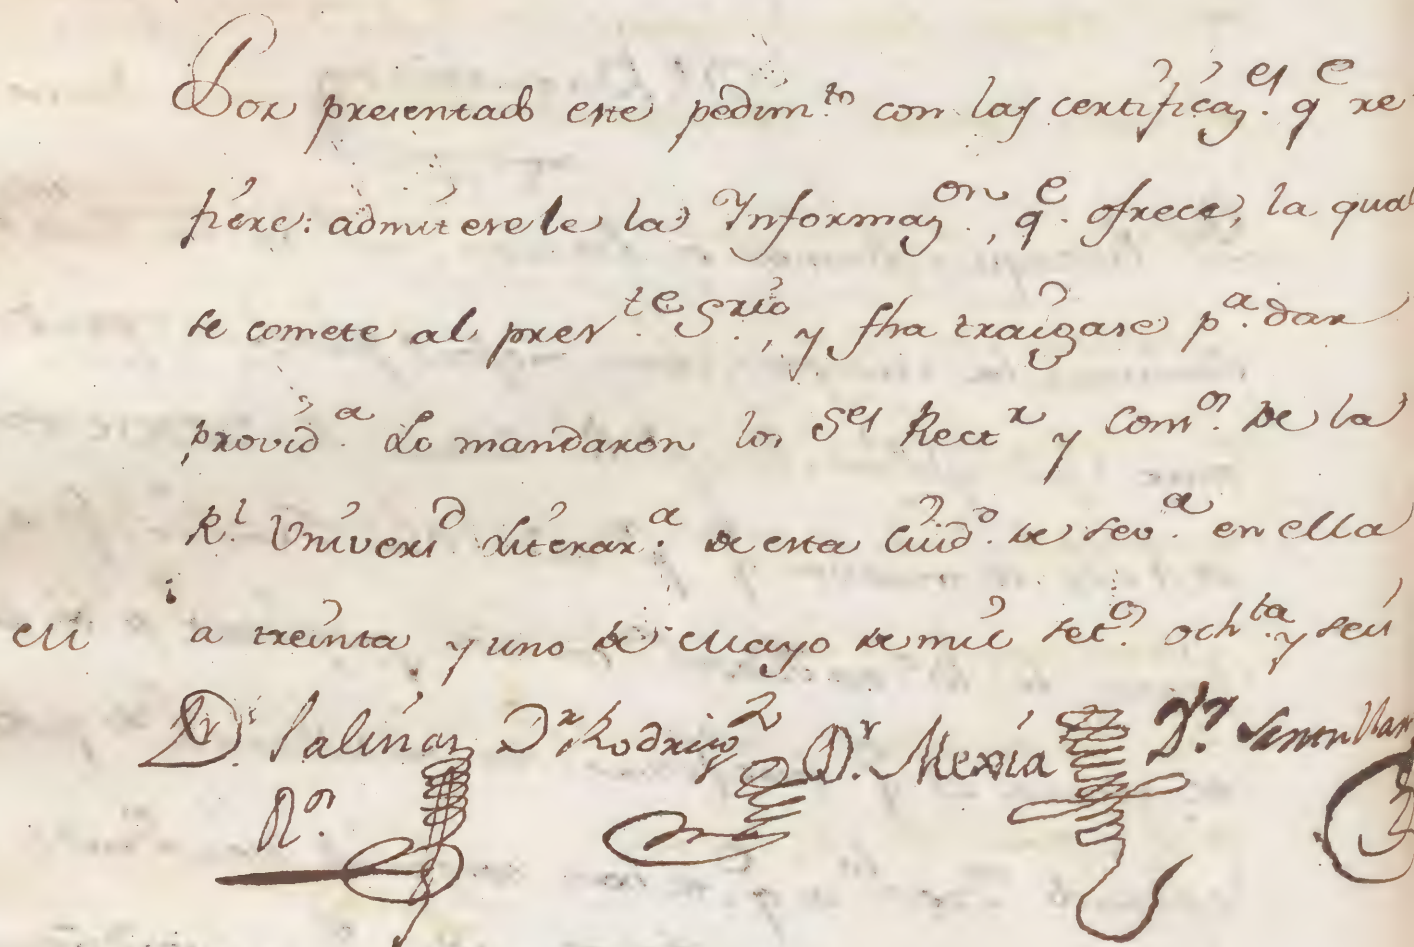 Por presentado este pedim.to con las certificaz.es q.e re
fiere: admitesele la Informaz.on, q.e ofrece, la qual
se comete al pres.te Srio., y fha traigase p.a dar
provid.a Lo mandaron los S.es Rect.r y Com.s de la
R.l Universi.d Literar.a de esta Ciud.d de Sev.a en ella
a treinta y uno de Mayo de mil set.s och.ta y seis
D.r Salinas D.r Rodrig.z D.r Mexia D.r Santillan
R.or